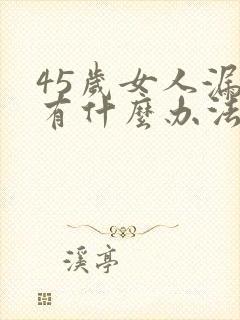 45歲女人漏
有什麼办法
溪亭